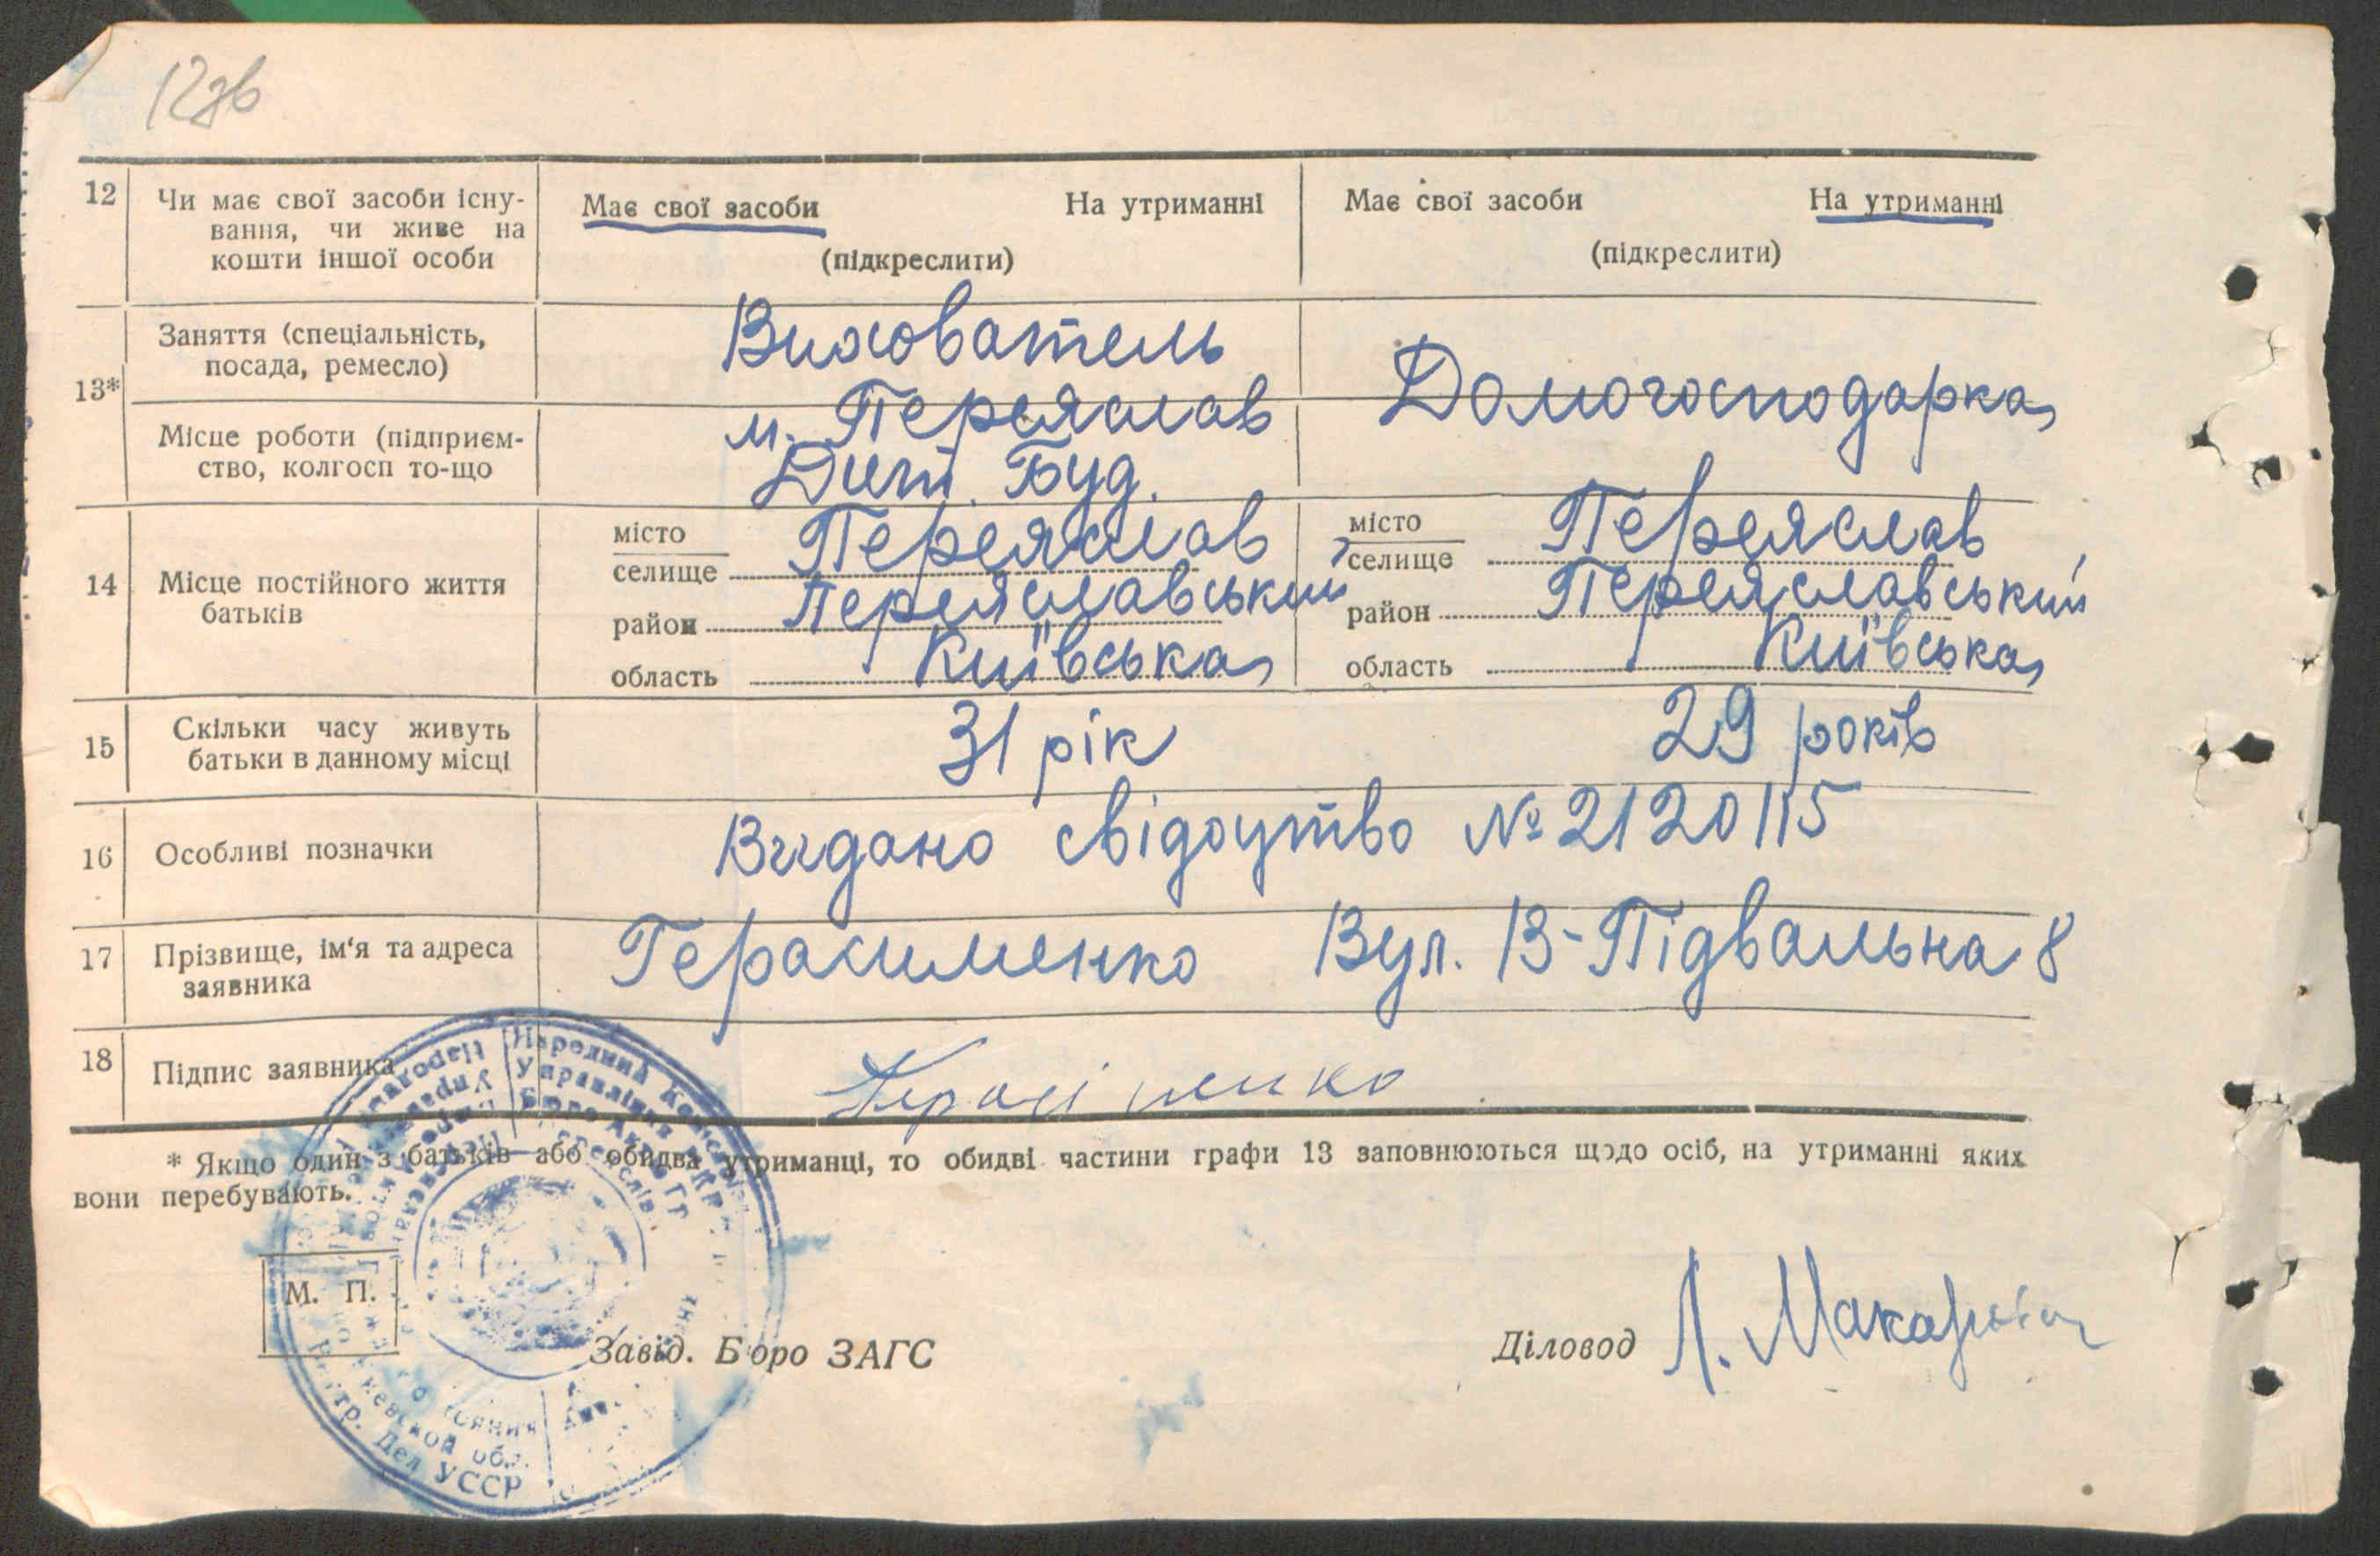 12зв
12 Чи має свої засоби існу-
вання, чи живе на
кошти іншої особи
Має свої засоби На утриманні
(підкреслити)
Має свої засоби На утриманні
(підкреслити)
13*
Заняття (спеціальність,
посада, ремесло)
Вихователь
Домогосподарка
Місце роботи (підприєм-
ство, колгосп то-що
м. Переяслав
Дит. Буд.
14 Місце постійного життя
батьків
місто
селище Переяслав
район Переяславський
область Київська
місто
селище Переяслав
район Переяславський
область Київська
15 Скільки часу живуть
батьки в данному місці
31 рік
29 років
16 Особливі позначки
Видано свідоцтво № 2120115
17 Прізвище, ім'я та адреса
заявника
Герасименко Вул. В-Підвальна 8
18 Підпис заявника
* Якщо один з батьків або обидва утриманці, то обидві частини графи 13 заповнюються щодо осіб, на утриманні яких
вони перебувають.
М. П.
Завід. Бюро ЗАГС
Діловод Л. Макар
Народний
Управління
Бюро Актів
Дел УССР